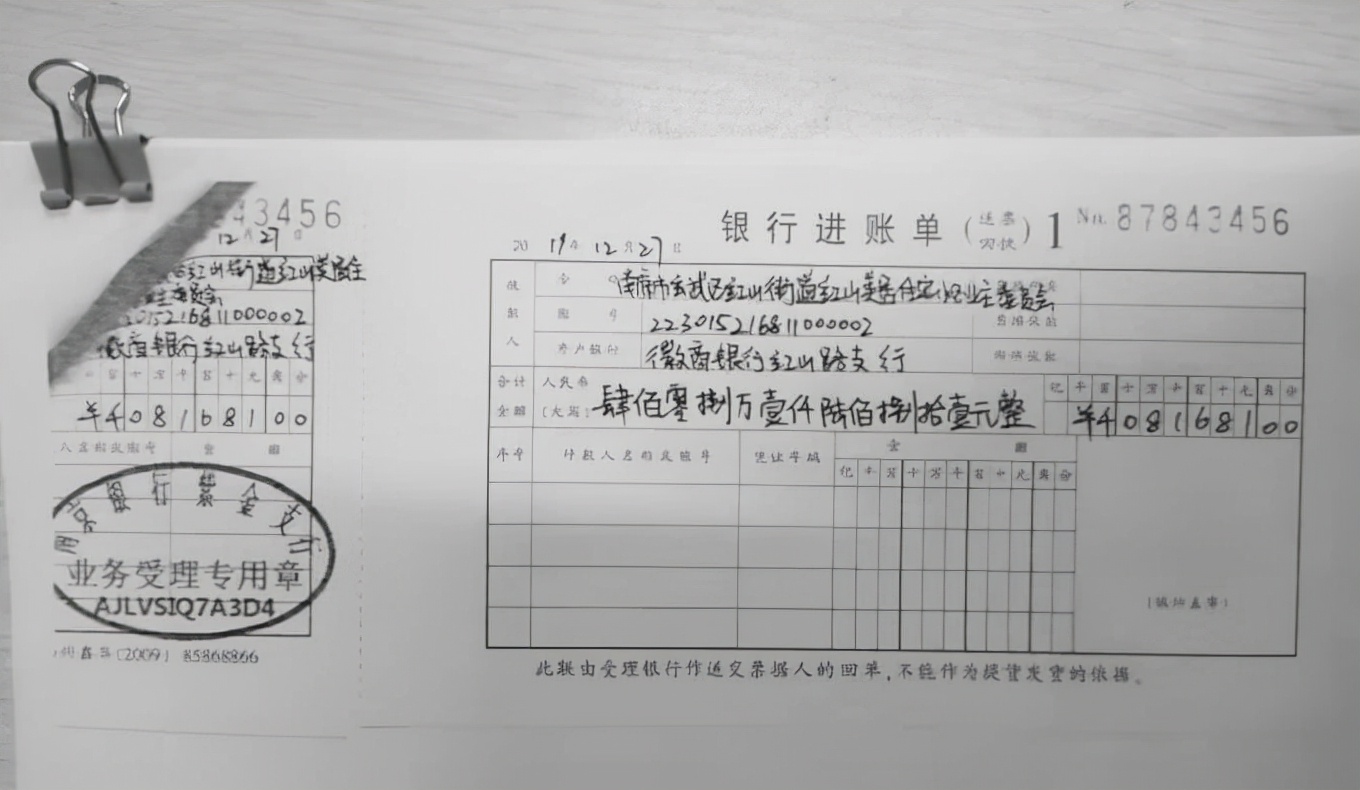 43456
12月27日
红山街道红山美居住
委员会
2015216811000002
徽商银行红山路支行
百十万千百十元角分
¥408168100
南京银行紫金支行
业务受理专用章
AJLVSIQ7A3D4
(2009) 85868866
银行进账单(送票回使)1 No. 87843456
2019年12月27日
收款人
全
南京市玄武区红山街道红山美居住宅小区业主委员会
账号
223015216811000002
开户银行
徽商银行红山路支行
合计金额
人民币(大写)
肆佰零捌万壹仟陆佰捌拾壹元整
亿千百十万千百十元角分
¥408168100
序号 付款人名称或账号 凭证号码 金额
亿千百十万千百十元角分
(银行盖章)
此联由受理银行作送交票据人的回单,不能作为提货发货的依据。